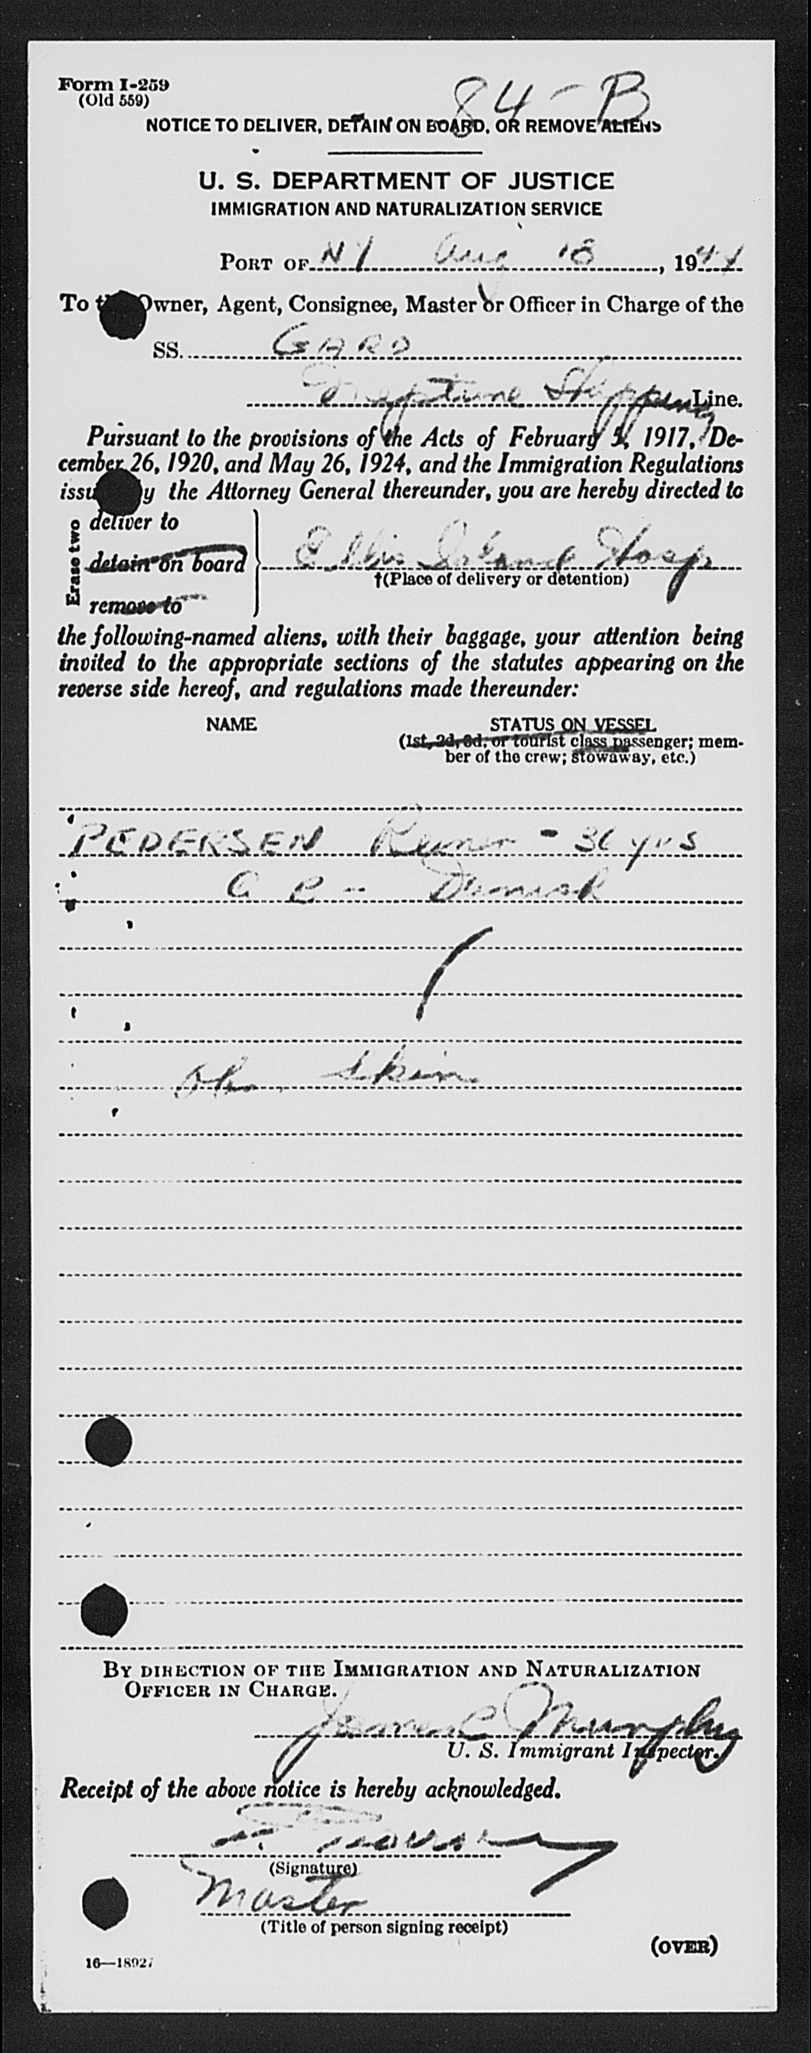 Form I-259
(Old 559)
84-B
NOTICE TO DELIVER, DETAIN ON BOARD, OR REMOVE ALIENS
U. S. DEPARTMENT OF JUSTICE
IMMIGRATION AND NATURALIZATION SERVICE
PORT OF NY Aug 18, 1944
To the Owner, Agent, Consignee, Master or Officer in Charge of the
SS. GARD
Neptune Shipping Line.
Pursuant to the provisions of the Acts of February 5, 1917, De-
cember 26, 1920, and May 26, 1924, and the Immigration Regulations
issued by the Attorney General thereunder, you are hereby directed to
Erase two
deliver to
detain on board
remove to
Ellis Island Hosp
†(Place of delivery or detention)
the following-named aliens, with their baggage, your attention being
invited to the appropriate sections of the statutes appearing on the
reverse side hereof, and regulations made thereunder:
NAME STATUS ON VESSEL
(1st, 2d, 3d, or tourist class passenger; mem-
ber of the crew; stowaway, etc.)
PEDERSEN - 36 yrs
Danish
Skin
BY DIRECTION OF THE IMMIGRATION AND NATURALIZATION
OFFICER IN CHARGE.
James C Murphy
U. S. Immigrant Inspector.
Receipt of the above notice is hereby acknowledged.
(Signature)
Master
(Title of person signing receipt)
(OVER)
16—18927